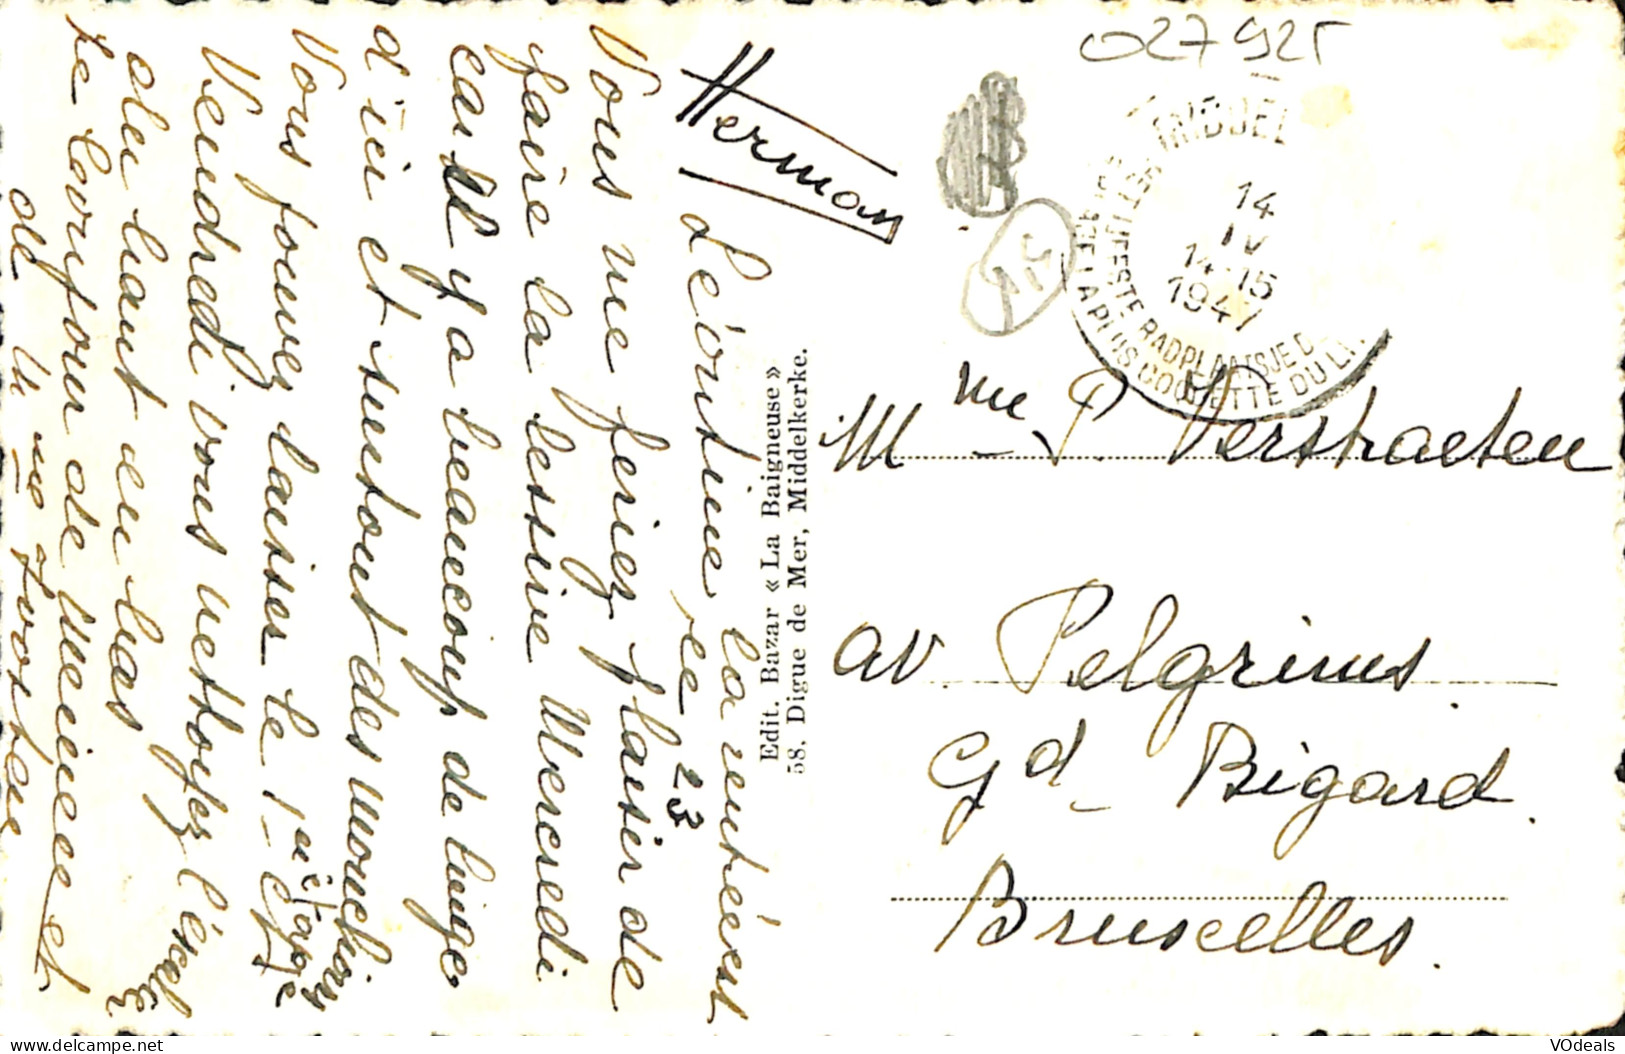 027925
MIDDEL
14
IV
14-15
1947
RADPLAATSJE D
LA PLUS COQUETTE DU LI
Mme P. Verstraeten
av. Pelgrims.
Gd Bigard.
Bruxelles.
Edit. Bazar « La Baigneuse »
58. Digue de Mer, Middelkerke.
Herman
L'ortine la rentrée est
le 23
Vous me feriez plaisir de
faire la lessive Mercredi
car il y a beaucoup de linge
d'ici et surtout des mouchoirs
Vous pouvez laisser le 1er étage
Vendredi vous nettoyez l'escalier
du haut en bas
Le Carrefour de Meiness et
du